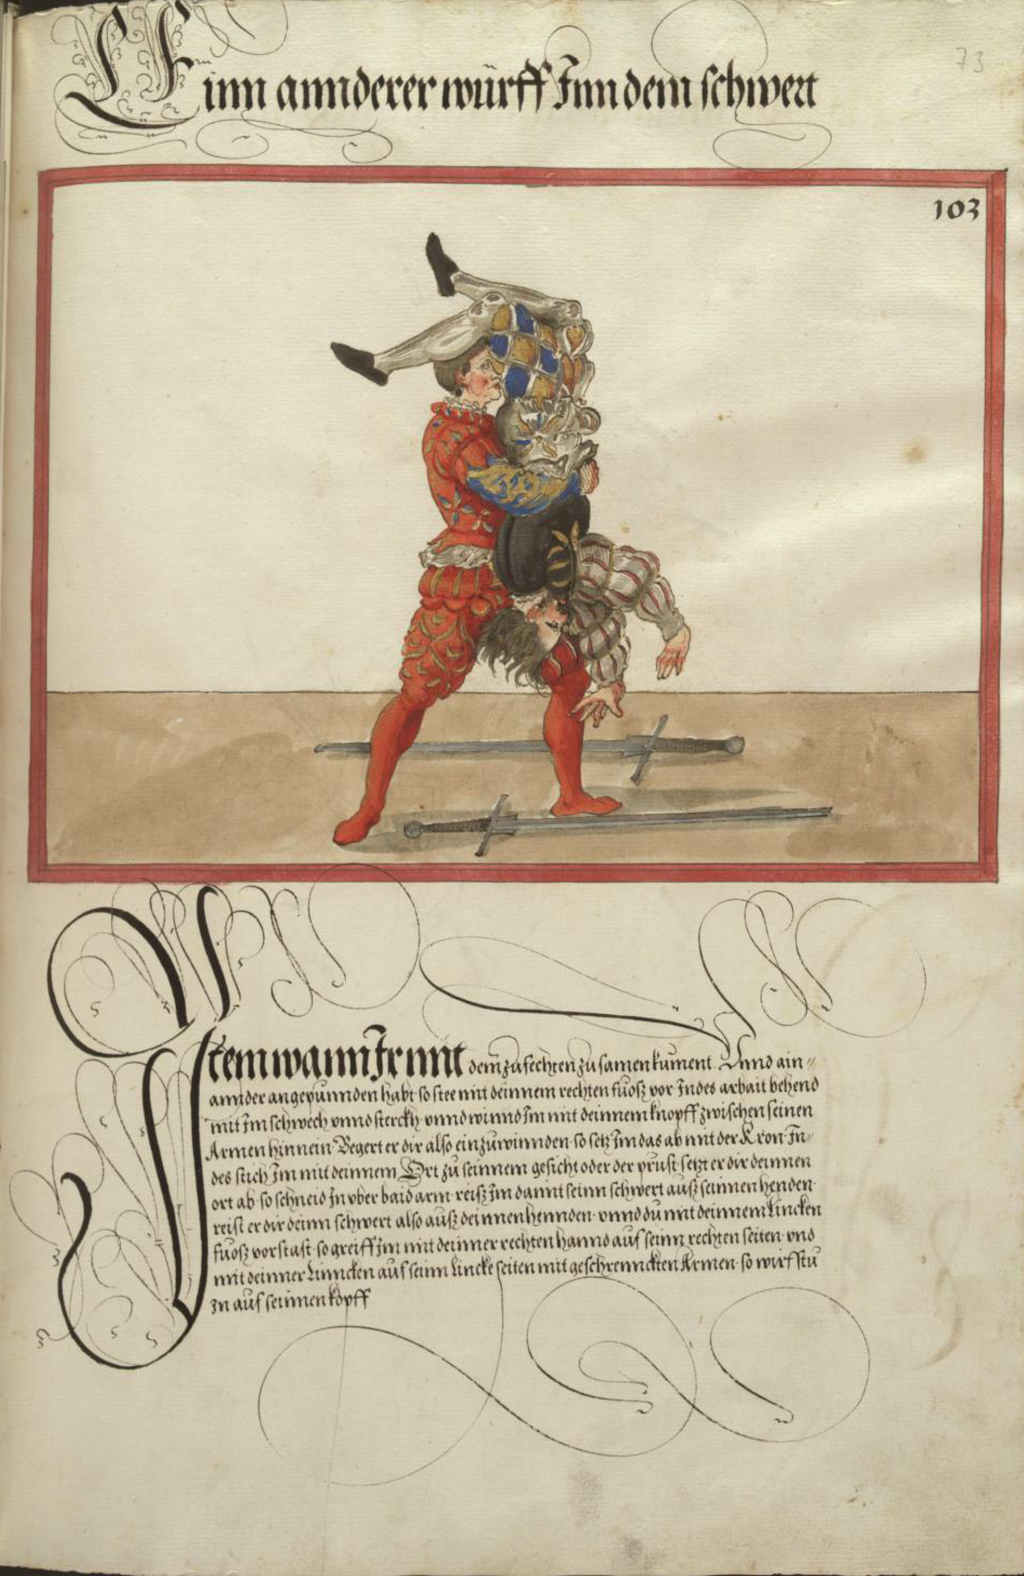 73
Einn annderer würff Inn dem schwert
103
Item wann Ir mit dem zufechten zusamen kument. Unnd ain=
annder angepunnden habt so stee mit deinnem rechten fuosz vor Indes arbait behend
mit Im schwech unnd sterckh unnd winnd Im mit deinnem knopff zwischen seinen
Armen hinnein Begert er dir also einzuwinnden so setz Im das ab mit der Kron In=
des stich Im mit deinnem Ort zu seinnem gesicht oder der prust setzt er dir deinnen
ort ab so schneid In vber baid arm reisz Im damit seinn schwert ausz seinnen henden
reist er dir deinn schwert also ausz deinnen hennden vnnd du mit deinnem Lincken
fuosz vorstast so greiff Im mit deinner rechten hannd auf seinn rechten seiten vnd
mit deinner Linncken auf seinn Lincke seiten mit geschrennckten Armen so wirfstu
In auf seinnen kopff